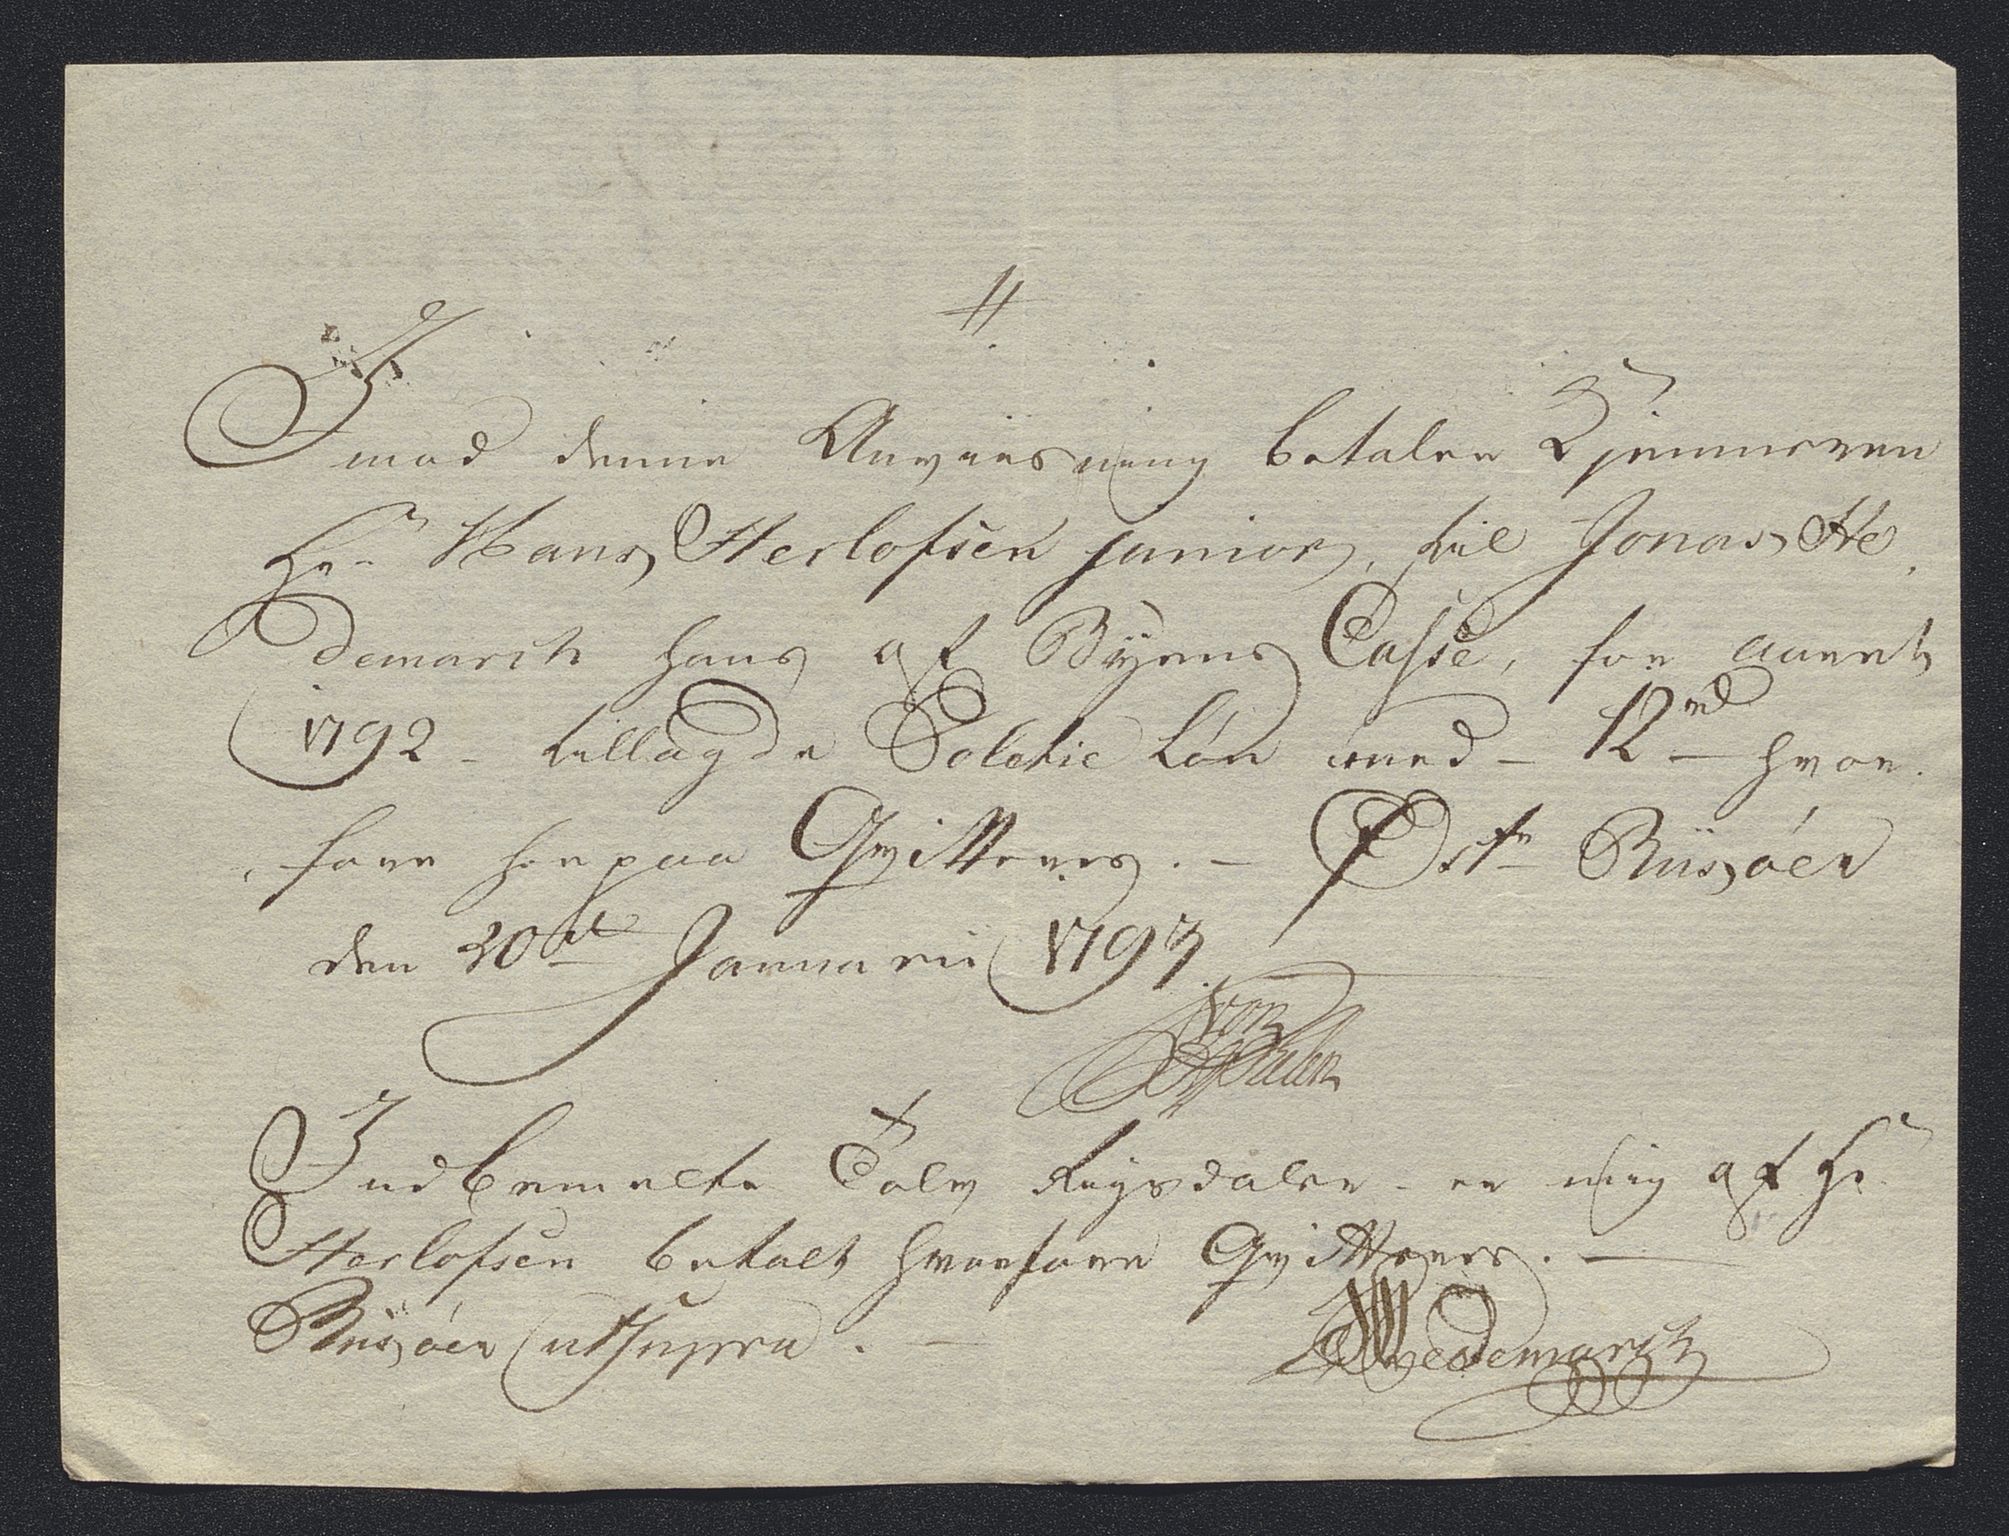 #
Imod denne Anviisning betaler Kjemneren
Hr Hans Herlofsen junior, til Jonas He
demarch hans af Byens Casse, for aaret
1792 - tillagde Politie Løn med - 12 rd - hvor
fore herpaa Qvitteres. - Øster Riisøer
den 20de Januarii 1793
von
Indbemelte Tolv Rigsdaler - er mig af Hr
Herlofsen betalt hvorfore Qvitteres. -
Riisøer ut Supra. -
Hedemarch